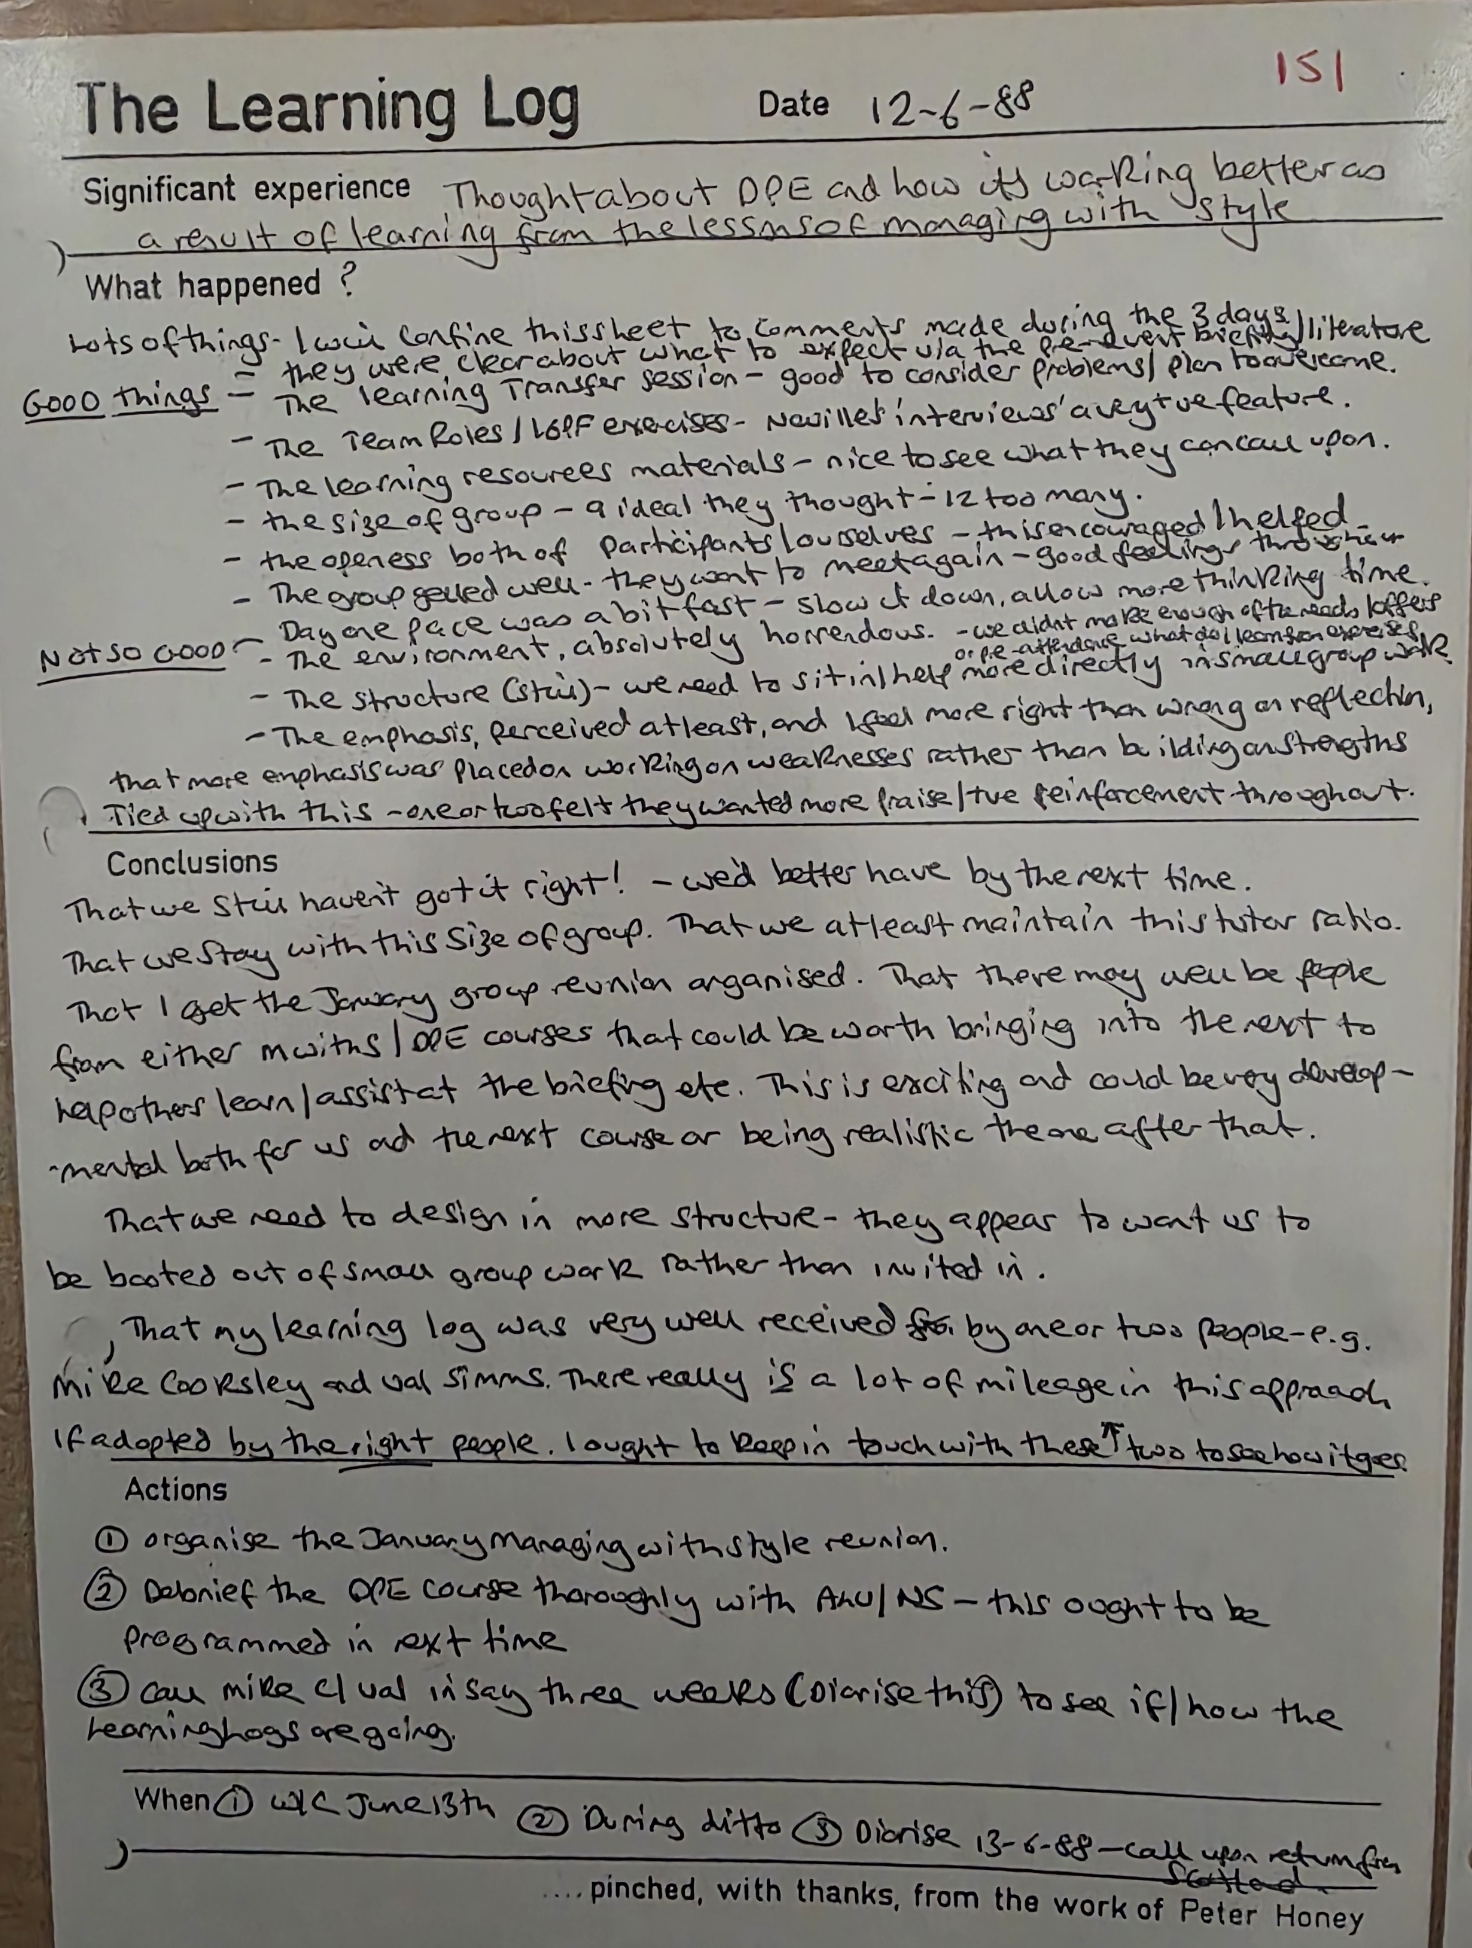 151
The Learning Log Date 12-6-88
Significant experience Thought about DPE and how it's working better as
a result of learning from the lessons of managing with style
What happened ?
Lots of things - I will confine this sheet to comments made during the 3 days
- they were clear about what to expect via the pre-event briefing/literature
Good things - The learning Transfer session - good to consider problems/plan to overcome.
- The Team Roles / exercises - Neville's 'interviews' a very +ve feature.
- The learning resourees materials - nice to see what they can call upon.
- the size of group - 9 ideal they thought - 12 too many.
- the openess both of participants/ourselves - this encouraged/helped
- The group gelled well - they want to meet again - good feelings throughout
Not so good - Day one pace was a bit fast - slow it down, allow more thinking time.
- The environment, absolutely horrendous. - we didnt make enough of the needs/offers
or pre-attendance what do I learn from exercises
- The structure (still) - we need to sit in/help more directly in small group work
- The emphasis, perceived at least, and I feel more right than wrong on reflection,
that more emphasis was placed on working on weaknesses rather than building on strengths
Tied up with this - one or two felt they wanted more praise/+ve reinforcement throughout.
Conclusions
That we still haven't got it right! - we'd better have by the next time.
That we stay with this size of group. That we at least maintain this tutor ratio.
That I get the January group reunion organised. That there may well be people
from either mwiths/DPE courses that could be worth bringing into the next to
help others learn/assist at the briefing etc. This is exciting and could be very develop-
-mental both for us and the next course or being realistic the one after that.
That we need to design in more structure - they appear to want us to
be booted out of small group work rather than invited in.
That my learning log was very well received by one or two people - e.g.
Mike Cooksley and Val Simms. There really is a lot of mileage in this approach
If adopted by the right people. I ought to keep in touch with these two to see how it goes
Actions
① organise the January Managing with style reunion.
② Debrief the DPE course thoroughly with AHU/NS - this ought to be
programmed in next time
③ Call Mike C/Val in say three weeks (Diarise this) to see if/how the
Learning Logs are going.
When ① W/C June 13th ② During ditto ③ Diarise 13-6-88 - call upon return from
Scotland.
....pinched, with thanks, from the work of Peter Honey